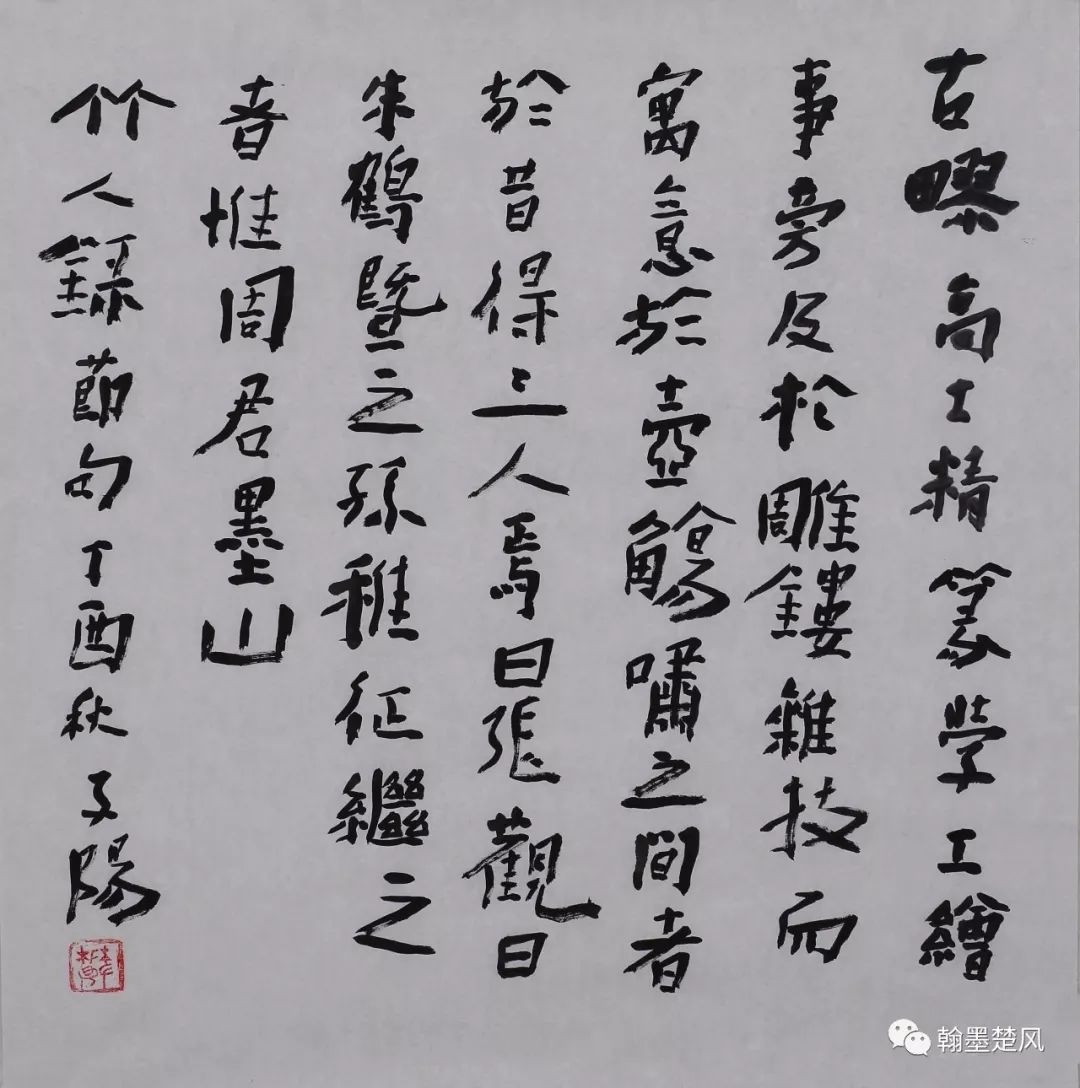 古疁高士精篆学工繪
事旁及於雕鏤雜技而
寓意於壺觴嘯之間者
於昔得三人焉曰張觀曰
朱鶴暨之孫稚征繼之
者惟周君墨山
竹人錄節句丁酉秋陽
翰墨楚风